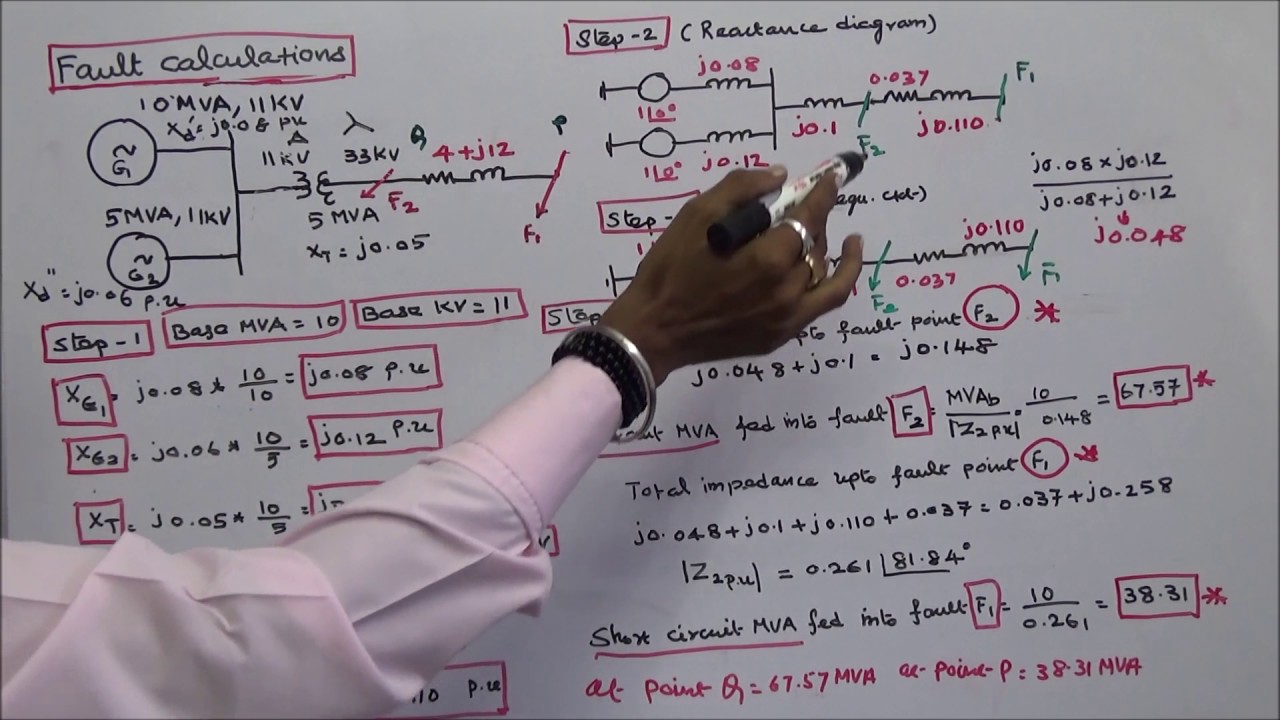 Fault calculations
10 MVA, 11KV
Xd'' = j0.08 pu
G1
5MVA, 11KV
G2
Xd'' = j0.06 p.u
Δ
11KV
33KV
5 MVA
XT = j0.05
Q
4+j12
P
F2
F1
Step-1
Base MVA = 10
Base KV = 11
XG1 = j0.08 * 10/10 = j0.08 p.u
XG2 = j0.06 * 10/5 = j0.12 p.u
XT = j0.05 * 10/5 =
10 p.u
Step-2 (Reactance diagram)
j0.08
1∠0°
j0.12
1∠0°
j0.1
F2
0.037
j0.110
F1
Step-
equ. ckt-)
F2
0.037
j0.110
F1
j0.08 x j0.12
j0.08 + j0.12
j0.048
upto fault point F2 *
j0.048 + j0.1 = j0.148
MVA fed into fault F2 = MVAb/|Z2pu| = 10/0.148 = 67.57 *
Total impedance upto fault point F1 *
j0.048 + j0.1 + j0.110 + 0.037 = 0.037 + j0.258
|Z2p.u| = 0.261 ∠81.84°
Short circuit MVA fed into fault F1 = 10/0.261 = 38.31 *
at point Q = 67.57 MVA at point-P = 38.31 MVA